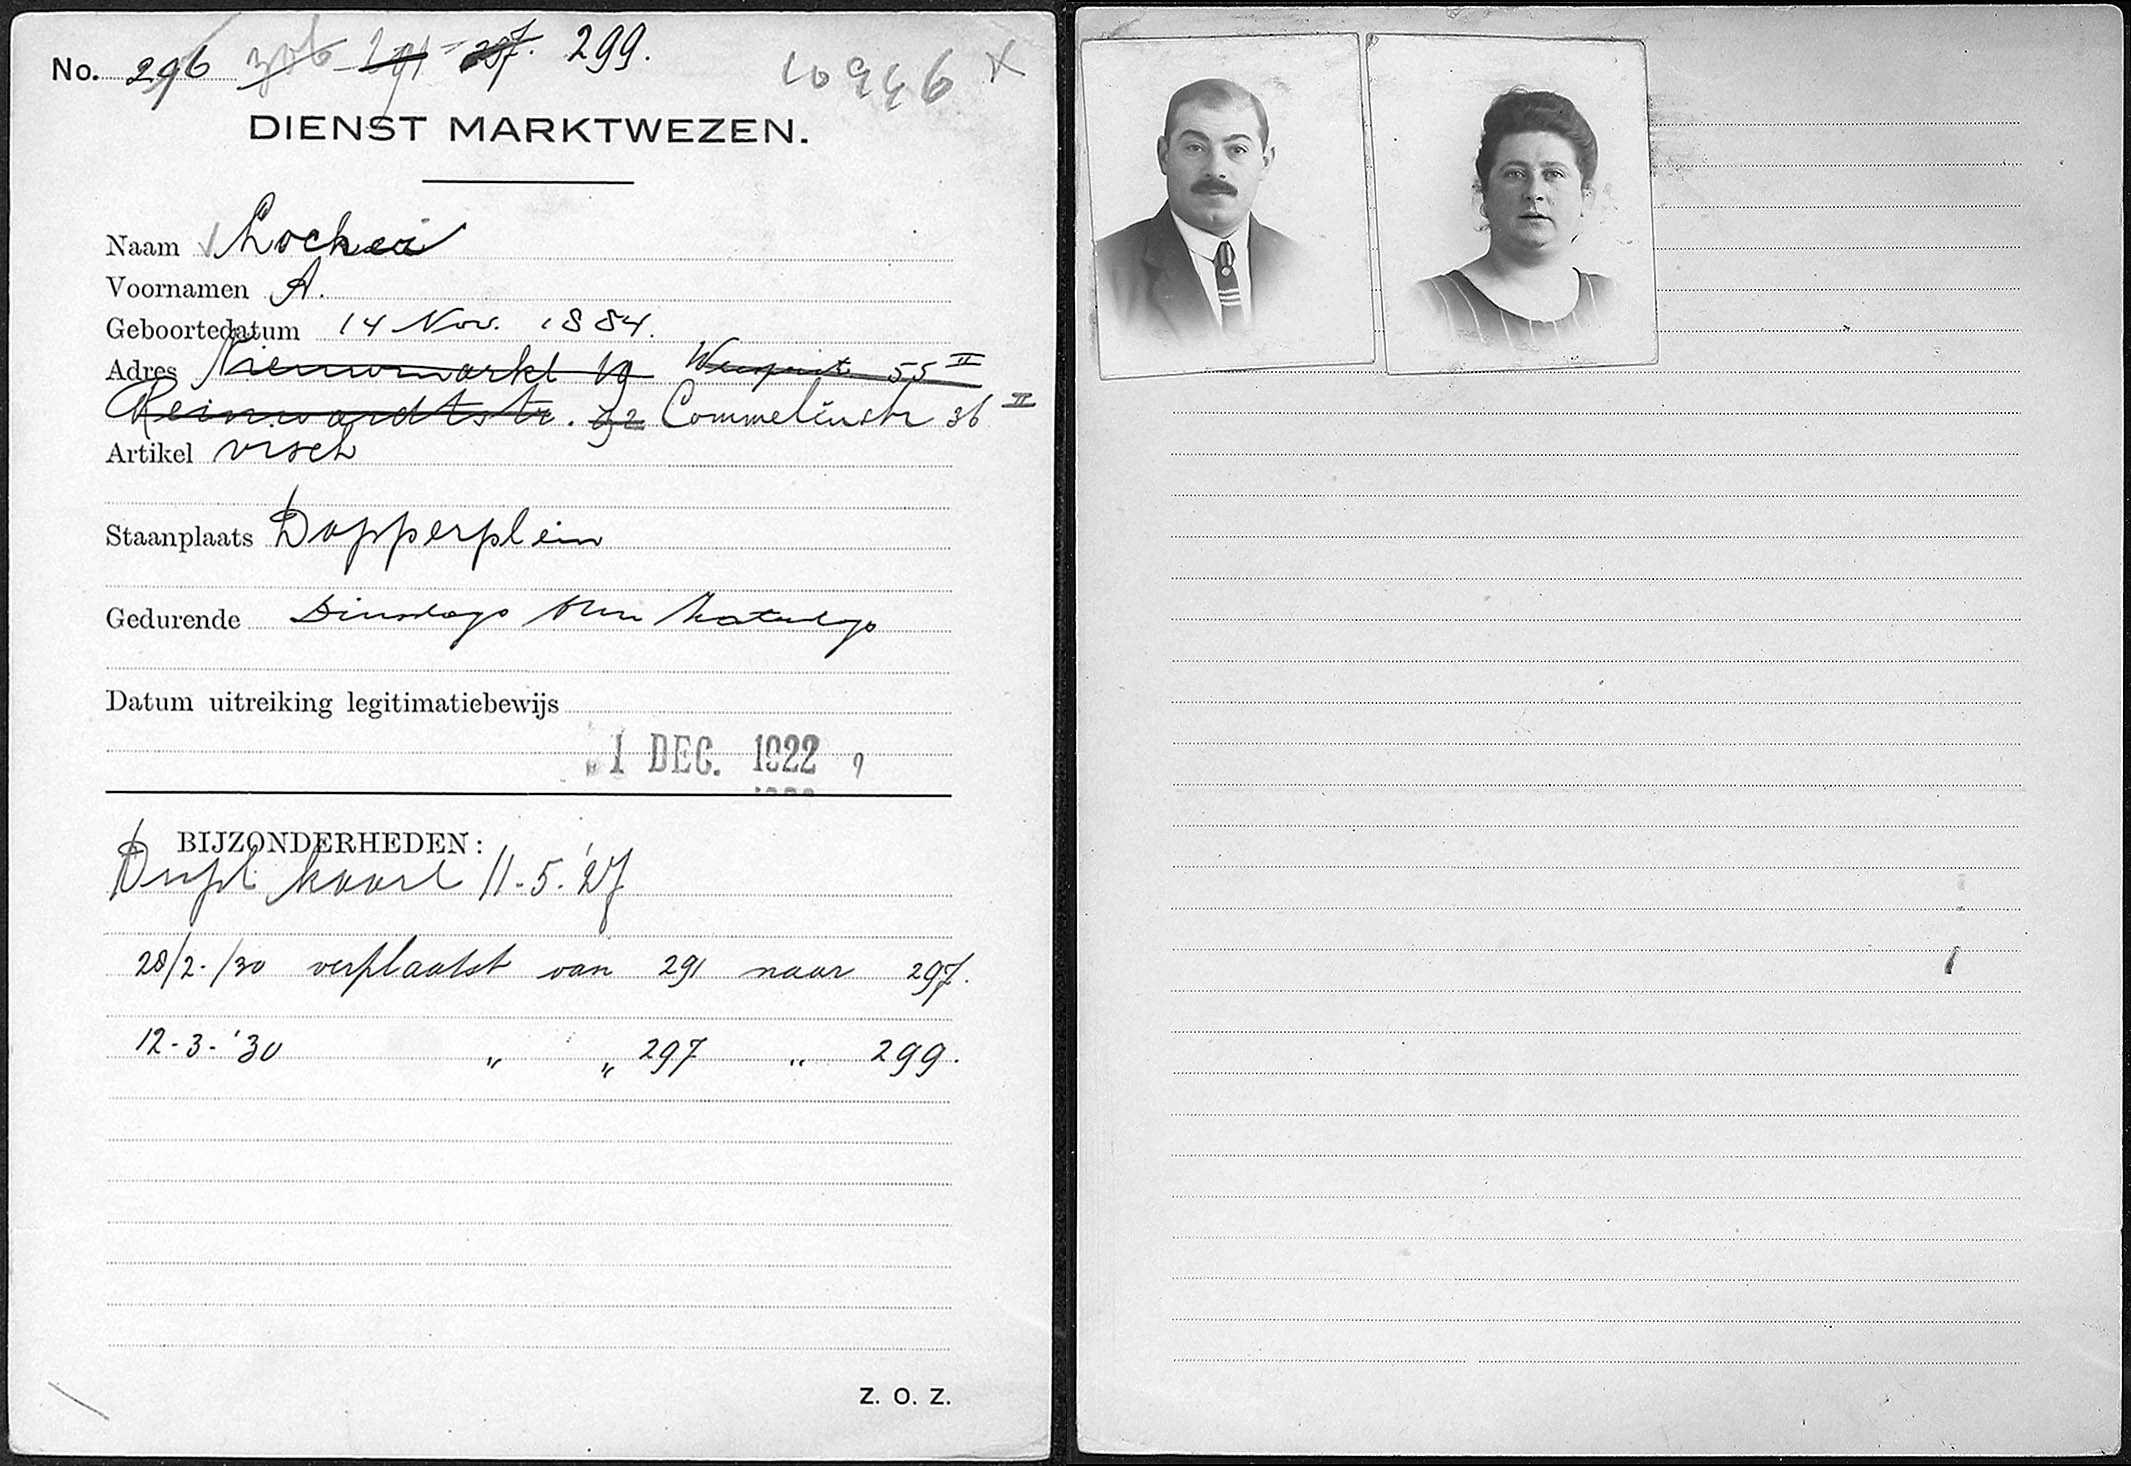 No. 296 306 291 - 297. 299. 10946 X
DIENST MARKTWEZEN.
Naam Lochei
Voornamen A.
Geboortedatum 14 Nov. 1884.
Adres Nieuwmarkt 19 55 II
Reinwardtstr. Commelinstr 36 II
Artikel visch
Staanplaats Dapperplein
Gedurende Dinsdags t/m Zaterdags
Datum uitreiking legitimatiebewijs
1 DEC. 1922
BIJZONDERHEDEN:
Dupl kaart 11-5-'27
28/2-/30 verplaatst van 291 naar 297.
12-3-'30 " " 297 " 299.
Z. O. Z.